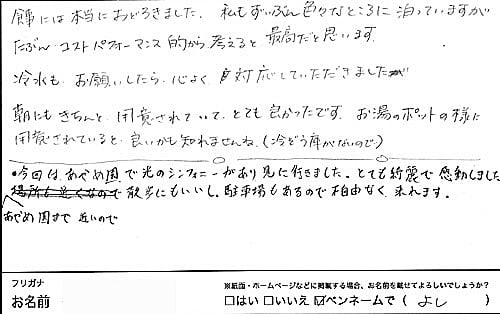 には本当におどろきました。私もずいぶん色々なところに泊っていますが
たぶん コストパフォーマンス的から考えると最高だと思います。
冷水も、お願いしたら、心よく 対応していただきましたが
朝にもきちんと、用意されていて、とても良かったです。お湯のポットの様に
用意されていると、良いかも知れませんね。(冷ぞう庫がないので)
・今回は、あやめ園で光のシンフォニーがあり見に行きました。とても綺麗で感動しました
場所も近くなので散歩にもいいし、駐車場もあるので不自由なく、来れます。
あやめ園まで近いので
フリガナ
お名前
※紙面・ホームページなどに掲載する場合、お名前を載せてよろしいでしょうか?
□はい □いいえ ☑ペンネームで ( よし )